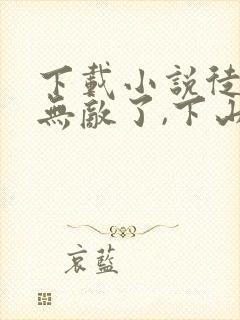 下載小説徒
無敵了,下山
哀藍